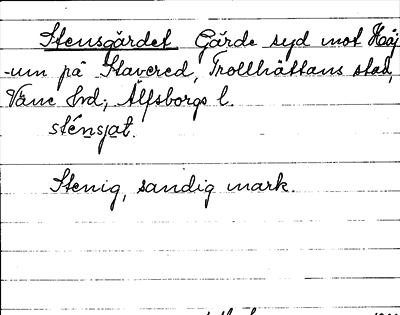 Stensgärdet Gärde syd mot Höj
-um på Stavered, Trollhättans stad,
Väne hd, Älfsborgs l.
sténsjat.
Stenig, sandig mark.